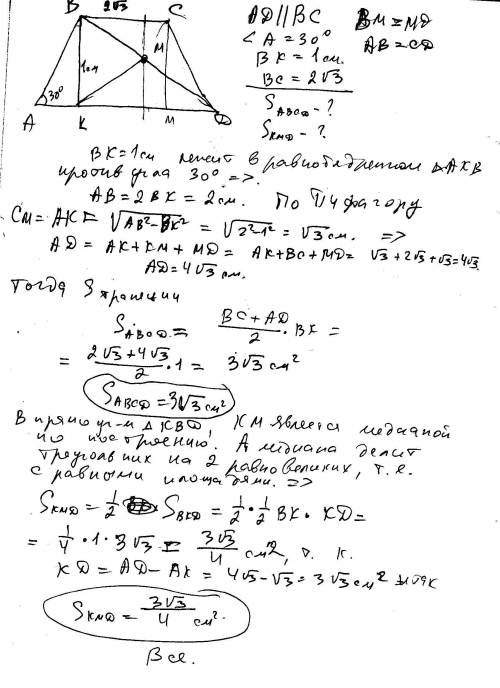 B 2√3 C
M
1см
30°
A K M D
AD||BC
∠A=30°
BK=1см.
BC=2√3
S_ABCD-?
S_KMD-?
BM=MD
AB=CD
BK=1см лежит в равнобедренном ΔAKB
против угла 30° =>.
AB=2BK=2см. По Пифагору
CM=AK=√AB²-BK² = √2²-1² = √3см. =>
AD=AK+KM+MD= AK+BC+MD= √3+2√3+√3=4√3.
AD=4√3 см.
Тогда S трапеции
S_ABCD = BC+AD/2 · BK =
= 2√3+4√3/2 · 1 = 3√3 см²
S_ABCD=3√3 см²
В прямоуг-м ΔKBD, KM является медианой
по построению! А медиана делит
треугольник на 2 равновеликих, т.е.
с равными площадями. =>
S_KMD = 1/2 S_BKD = 1/2 · 1/2 BK · KD=
= 1/4 · 1 · 3√3 = 3√3/4 см², т. к.
KD = AD-AK = 4√3-√3 = 3√3 см² итак
S_KMD = 3√3/4 см².
Все.